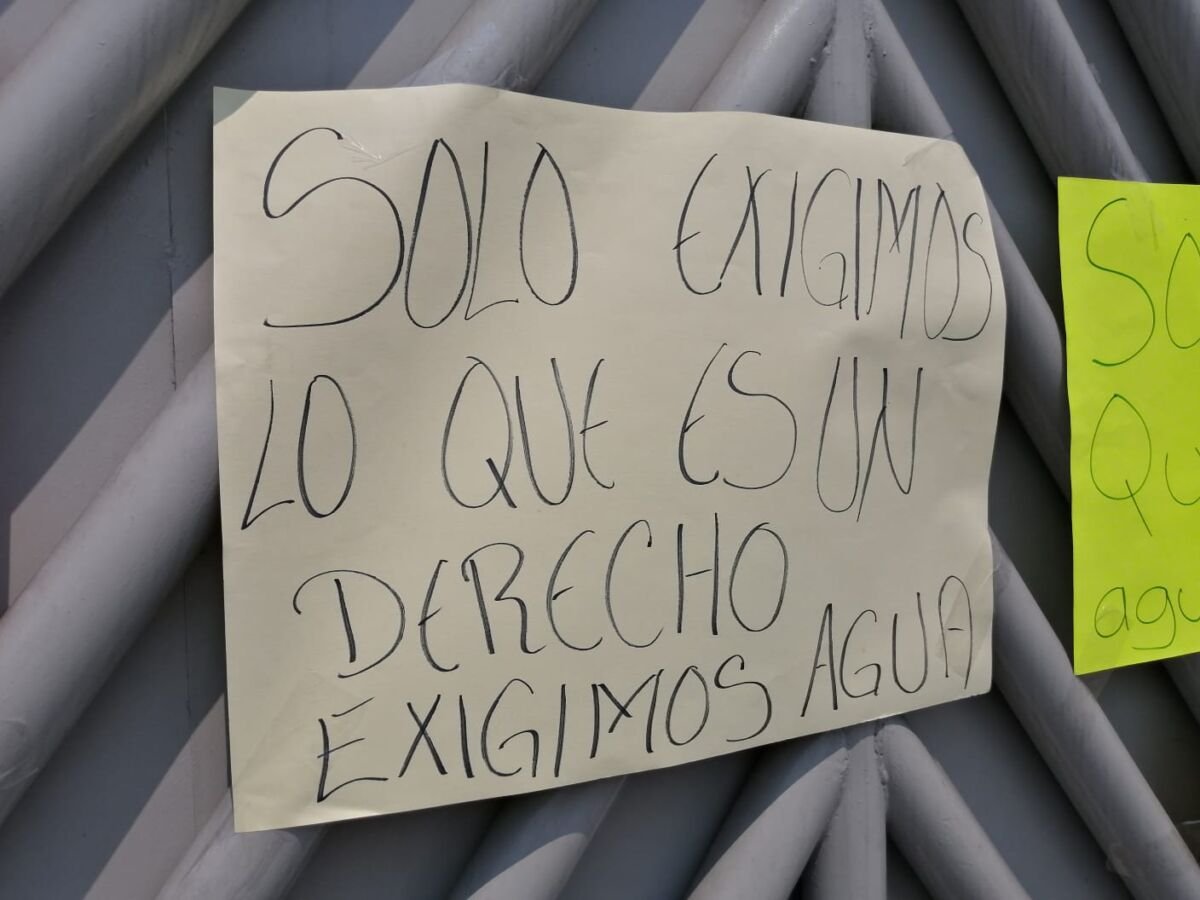 SOLO EXIGIMOS
LO QUE ES UN
DERECHO
EXIGIMOS AGUA